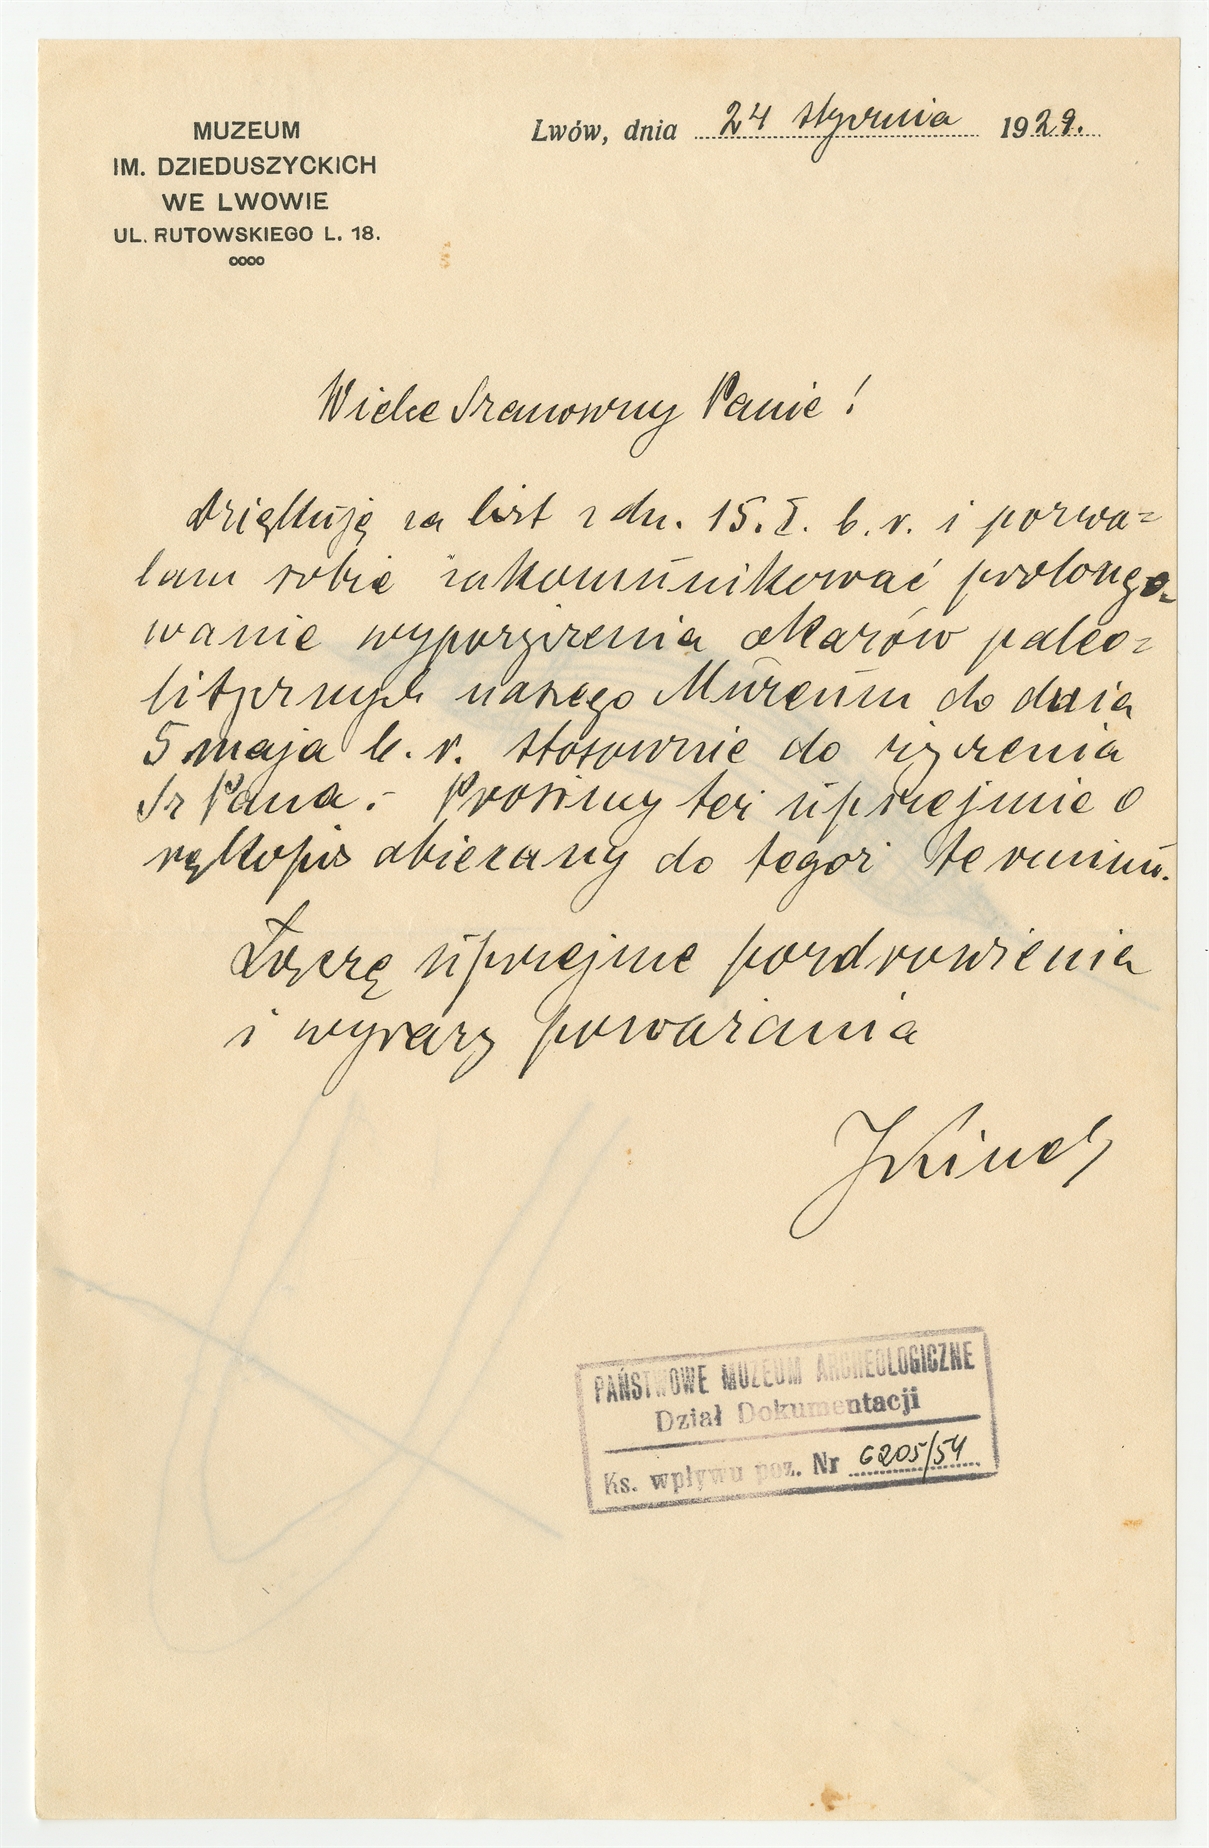 MUZEUM
IM. DZIEDUSZYCKICH
WE LWOWIE
UL. RUTOWSKIEGO L. 18.
Lwów, dnia 24 stycznia 1929.
Wielce Szanowny Panie!
Dziękuję za list z dn. 15. I. b. r. i pozwa=
lam sobie zakomunikować prolongo=
wanie wypożyczenia okazów paleo=
litycznych naszego Muzeum do dnia
5 maja b. r. stosownie do życzenia
Sz Pana. - Prosimy też uprzejmie o
rękopis obiecany do tegoż terminu.
Łączę uprzejme pozdrowienia
i wyrazy poważania
PAŃSTWOWE MUZEUM ARCHEOLOGICZNE
Dział Dokumentacji
Ks. wpływu poz. Nr 6205/54